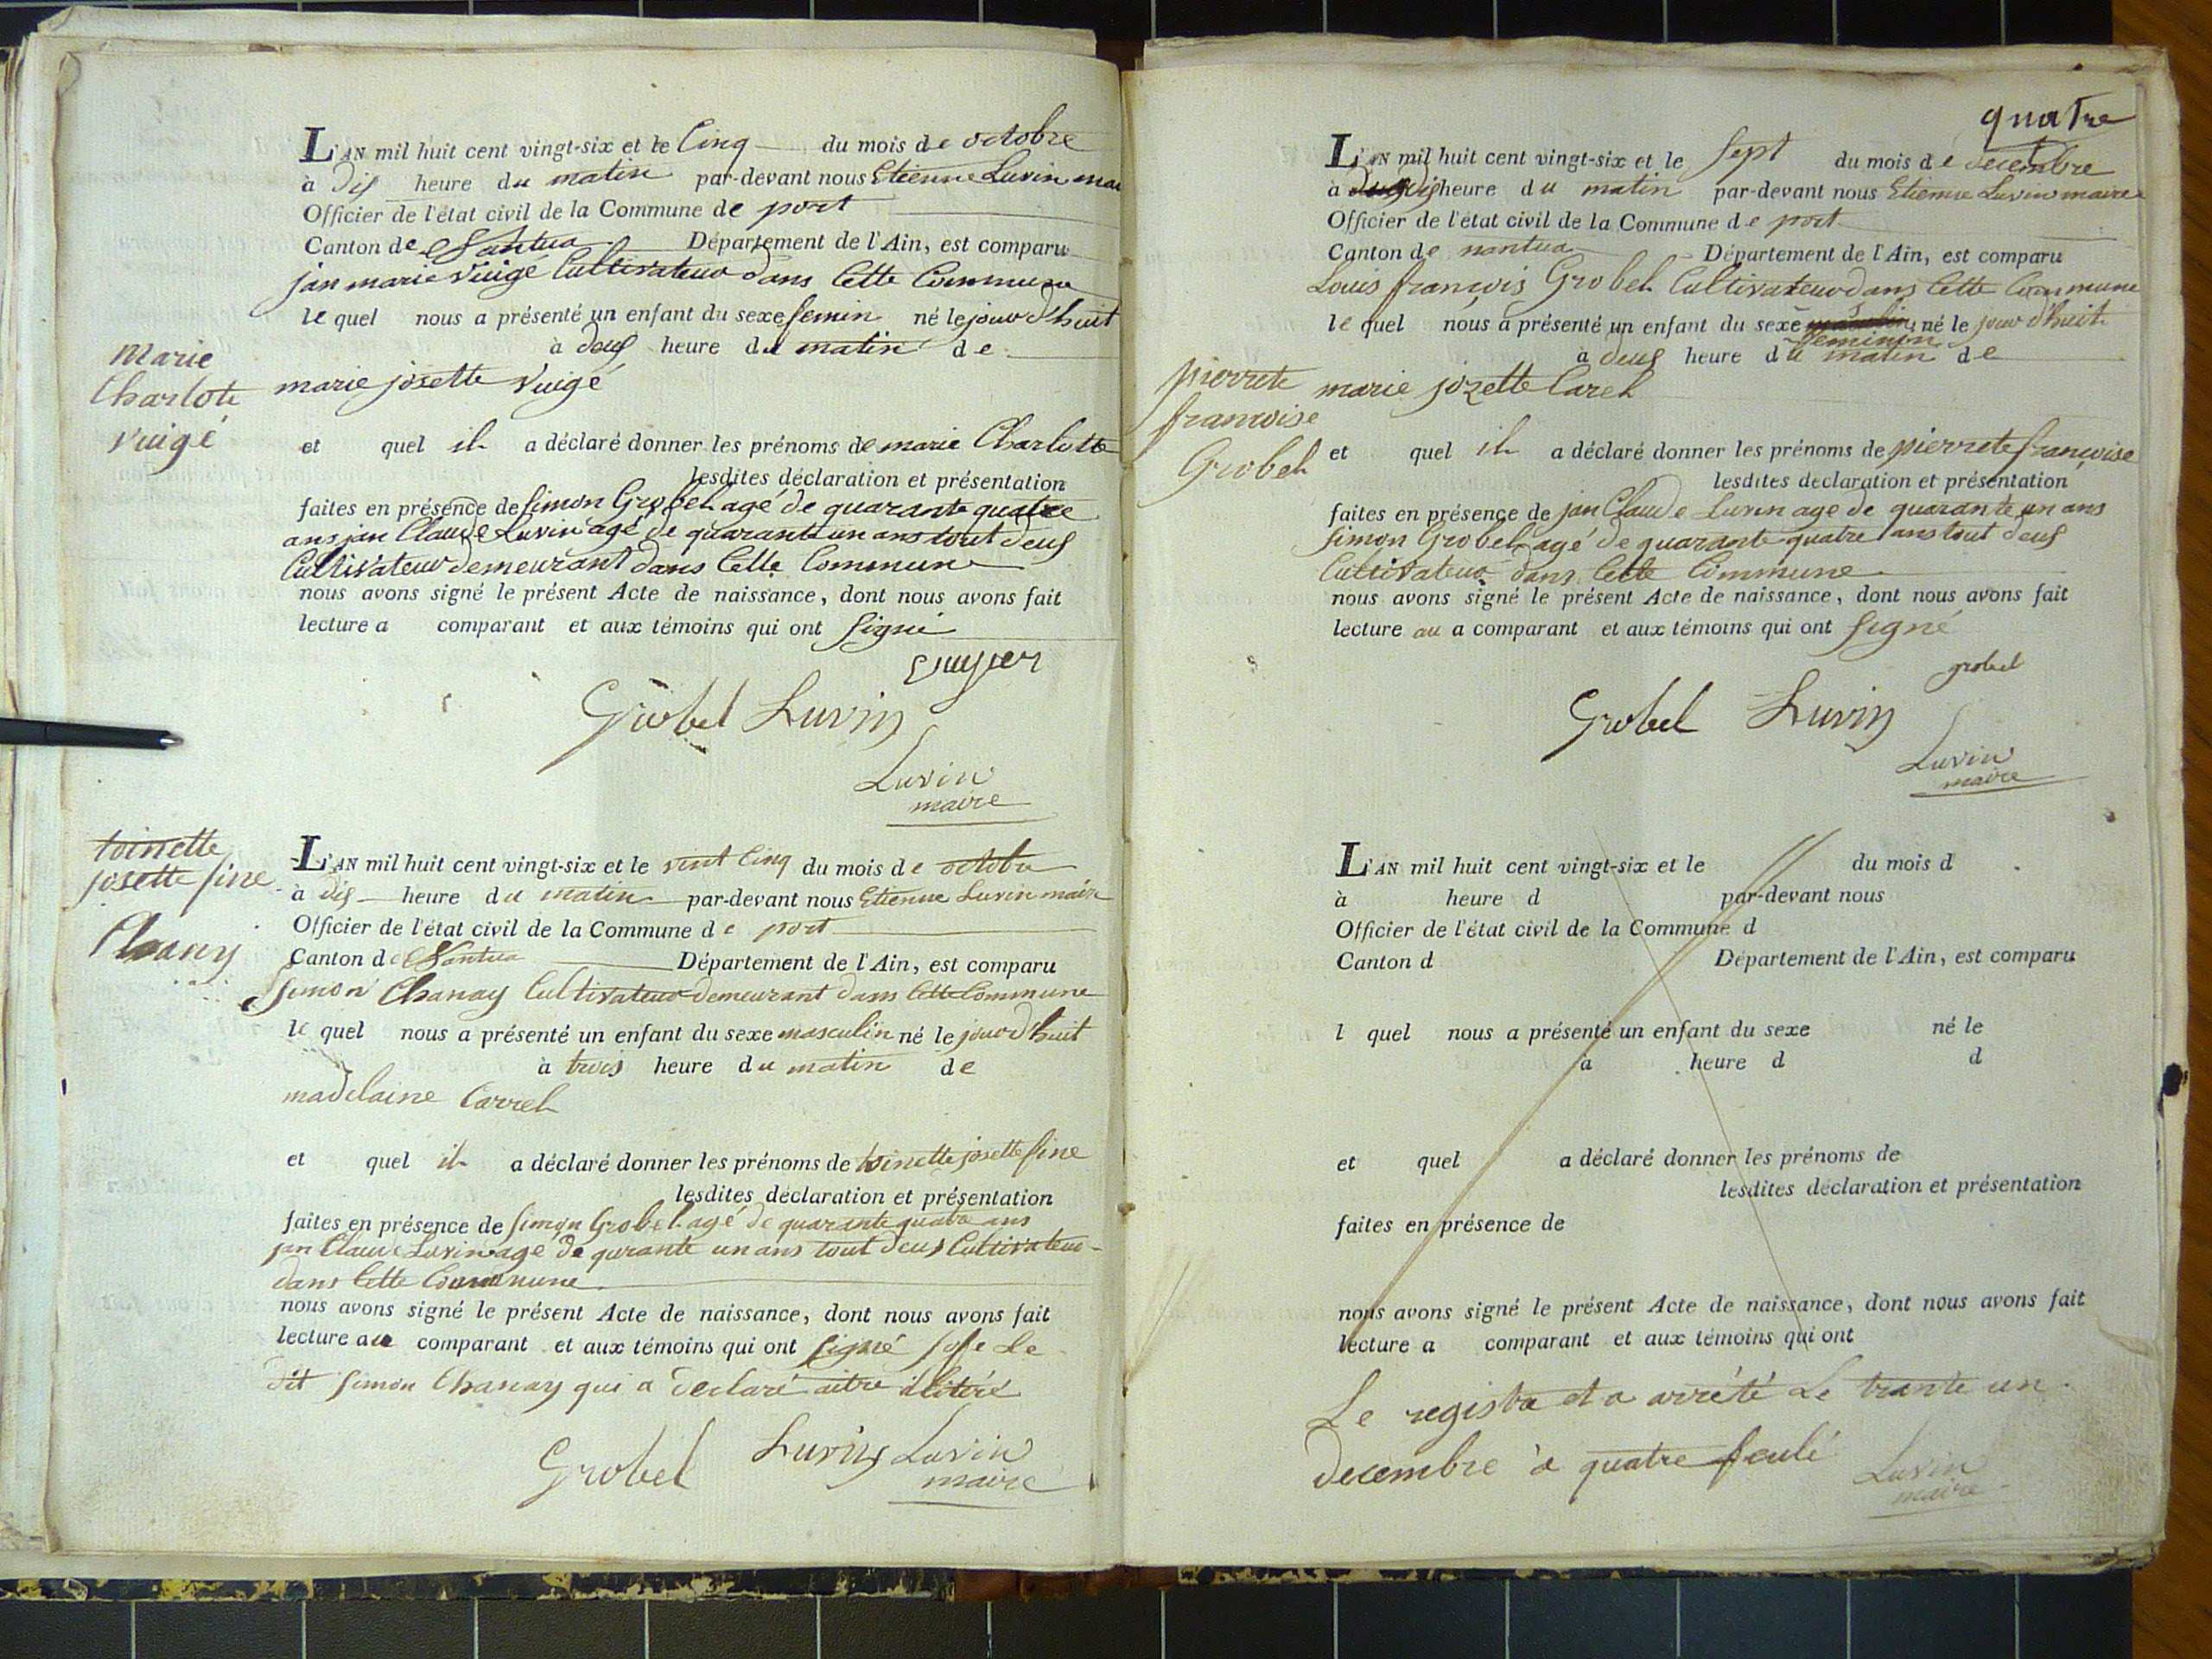 L'AN mil huit cent vingt-six et le Cinq du mois de octobre
à dis heure du matin par-devant nous Etienne Luvin mai
Officier de l'état civil de la Commune de port
Canton de Nantua Département de l'Ain, est comparu
jan marie Vuigé Cultivateur dans Cette Commune
le quel nous a présenté un enfant du sexe femin né le jour d'huit
à deus heure du matin de
Marie
Charlote
Vuigé
marie josette Vuigé
et quel il a déclaré donner les prénoms de marie Charlotte
lesdites déclaration et présentation
faites en présence de Simon Grobel agé de quarante quatre
ans jan Claude Luvin agé de quarante un ans tout deus
Cultivateur demeurant dans Cette Commune
nous avons signé le présent Acte de naissance, dont nous avons fait
lecture a comparant et aux témoins qui ont signé
Grobel Luvin
Luvin
maire
toinette
josette fine
Chany
L'AN mil huit cent vingt-six et le vint Cinq du mois de octobre
à dis heure du matin par-devant nous Etienne Luvin maire
Officier de l'état civil de la Commune de port
Canton de Nantua Département de l'Ain, est comparu
Simon Chanay Cultivateur demeurant dans Cette Commune
le quel nous a présenté un enfant du sexe masculin né le jour d'huit
à trois heure du matin de
madelaine Carrel
et quel il a déclaré donner les prénoms de toinette josette fine
lesdites déclaration et présentation
faites en présence de Simon Grobel agé de quarante quatre ans
jan Claude Luvin age de qurante un ans tout deus Cultivateur
dans Cette Commune
nous avons signé le présent Acte de naissance, dont nous avons fait
lecture au comparant et aux témoins qui ont signé sofe Le
dit Simon Chanay qui a declaré aitre ilitéré
Grobel Luvin Luvin
maire
quatre
L'AN mil huit cent vingt-six et le Sept du mois de decembre
à dis heure du matin par-devant nous Etienne Luvin maire
Officier de l'état civil de la Commune de port
Canton de nantua Département de l'Ain, est comparu
Louis françois Grobel Cultivateur dans Cette Commune
le quel nous a présenté un enfant du sexe feminin né le jour d'huit
à deus heure du matin de
pierrete
françoise
Grobel
marie jozette Carel
et quel il a déclaré donner les prénoms de pierrete françoise
lesdites déclaration et présentation
faites en présence de jan Claude Luvin age de quarante un ans
Simon Grobel agé de quarante quatre ans tout deus
Cultivateur dans Cette Commune
nous avons signé le présent Acte de naissance, dont nous avons fait
lecture au a comparant et aux témoins qui ont signé
grobel
Grobel Luvin
Luvin
maire
L'AN mil huit cent vingt-six et le du mois d
à heure d par-devant nous
Officier de l'état civil de la Commune d
Canton d Département de l'Ain, est comparu
l quel nous a présenté un enfant du sexe né le
à heure d d
et quel a déclaré donner les prénoms de
lesdites déclaration et présentation
faites en présence de
nous avons signé le présent Acte de naissance, dont nous avons fait
lecture a comparant et aux témoins qui ont
Le registre et a arrété Le trante un
decembre à quatre feulé
Luvin
maire